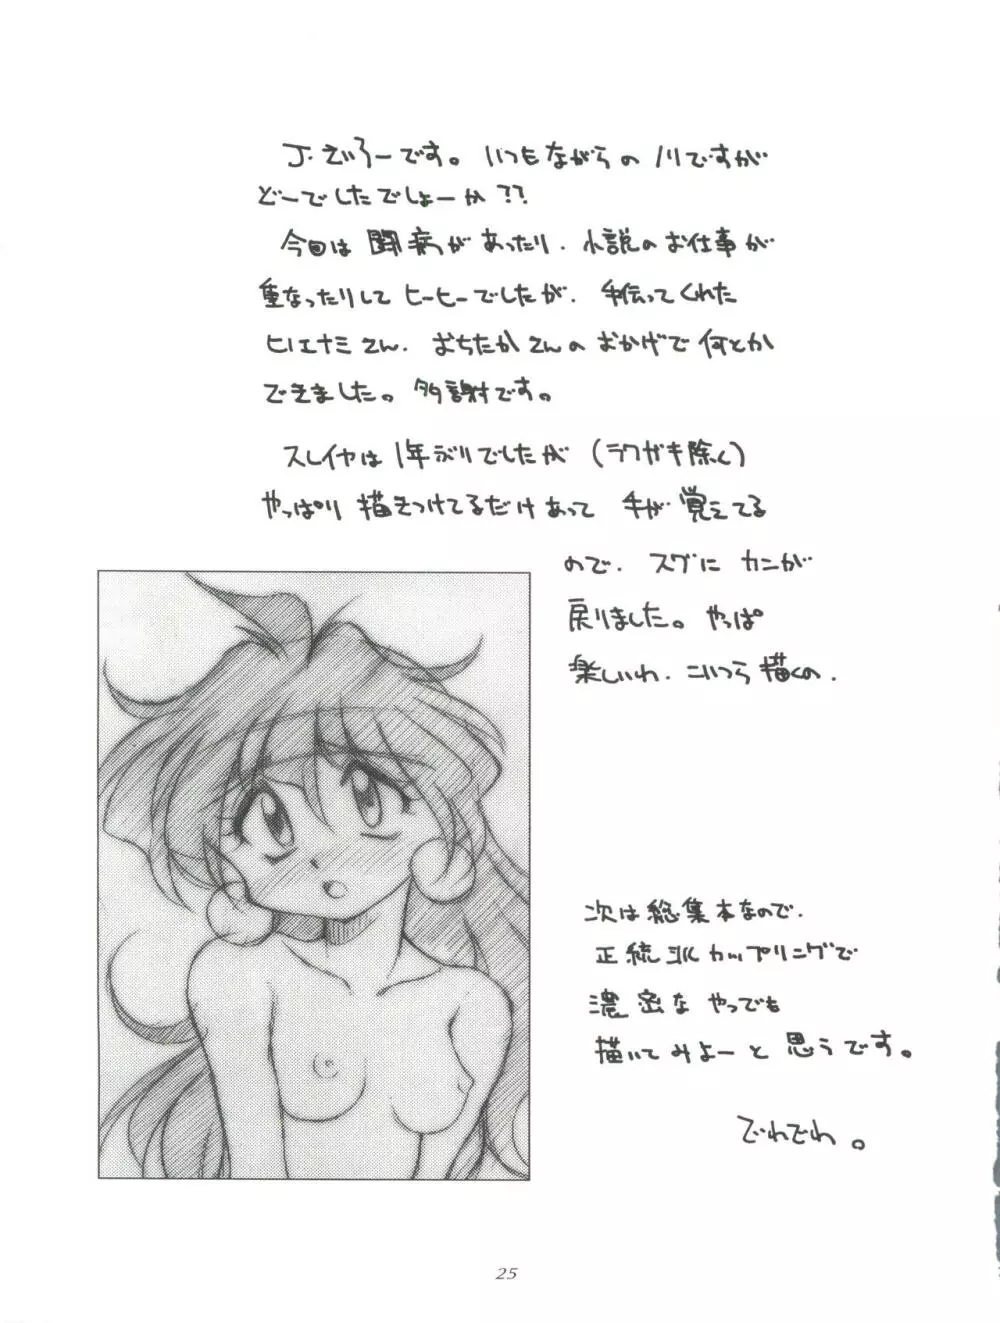 J・さいろーです。いつもながらのノリですが
どーでしたでしょーか??
今回は闘病があったり、小説のお仕事が
重なったりしてヒーヒーでしたが、手伝ってくれた
ヒノエナミさん、おちたかさんのおかげで何とか
できました。多謝です。
スレイヤは1年ぶりでしたが(ラクガキ除く)
やっぱり描きつけてるだけあって手が覚えてる
ので、スグにカンが
戻りました。やっぱ
楽しいわ、こいつら描くの。
次は総集本なので、
正統派カップリングで
濃密なやつでも
描いてみよーと思うです。
でわでわ。
25